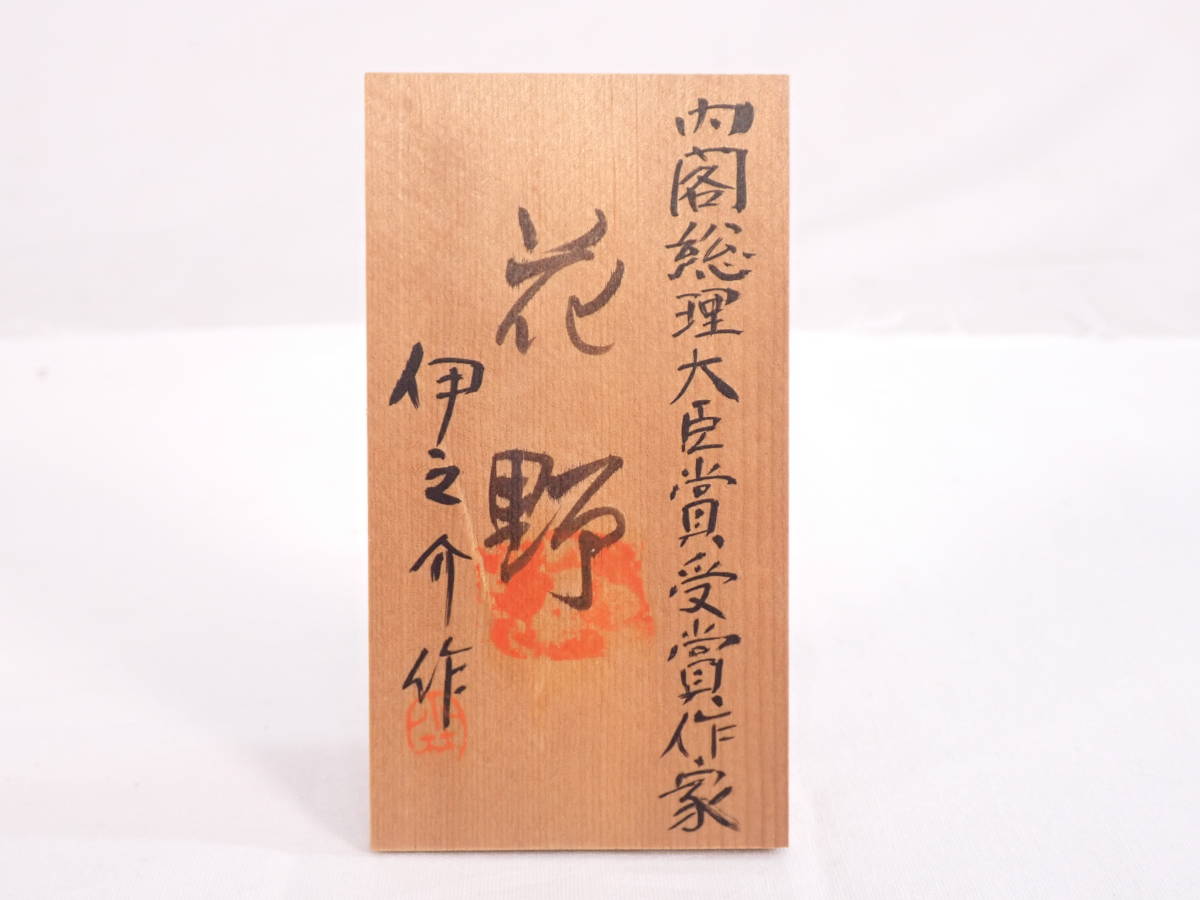 内閣総理大臣賞受賞作家
花野
伊之介作